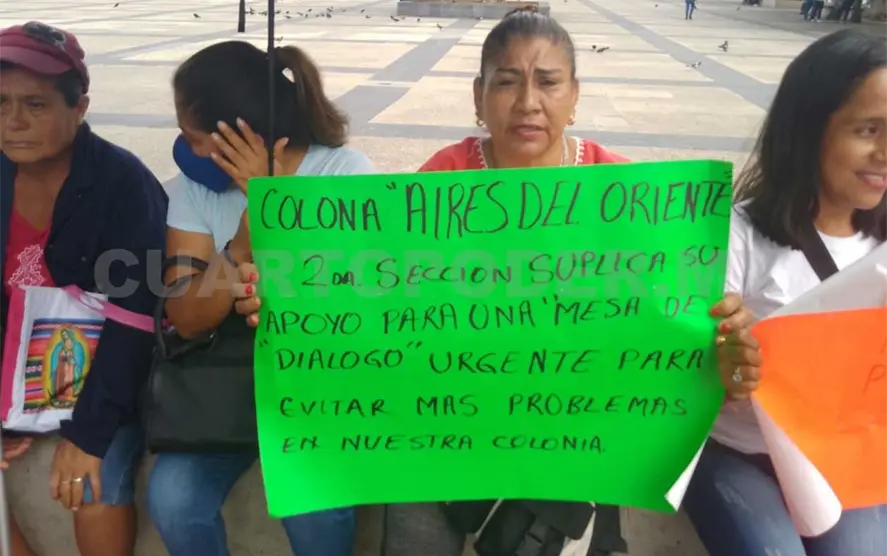 COLONA "AIRES DEL ORIENTE"
2DA. SECCION SUPLICA SU
APOYO PARA UNA "MESA DE
"DIALOGO" URGENTE PARA
EVITAR MAS PROBLEMAS
EN NUESTRA COLONIA.
CUARTOPODER.M